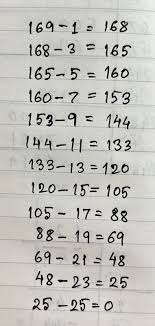 169-1 = 168
168-3 = 165
165-5 = 160
160-7 = 153
153-9 = 144
144-11 = 133
133-13 = 120
120-15 = 105
105-17 = 88
88-19 = 69
69-21 = 48
48-23 = 25
25-25 = 0